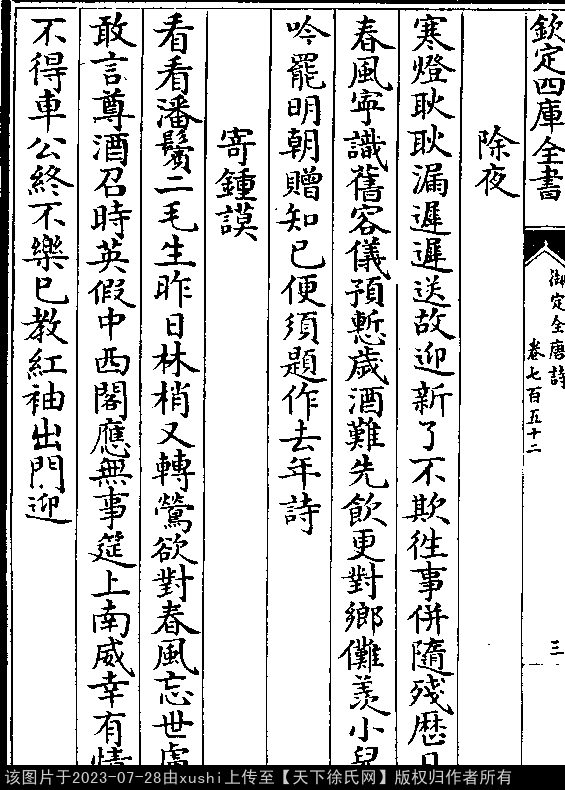 欽定四庫全書
御定全唐詩
卷七百五十二
三
除夜
寒燈耿耿漏遲遲送故迎新了不欺徃事併隨殘歴日
春風寜識舊容儀預慙歳酒難先飲更對鄉儺羨小兒
吟罷明朝贈知已便須題作去年詩
寄鍾謨
看看潘鬢二毛生昨日林梢又轉鶯欲對春風忘世慮
敢言尊酒召時英假中西閣應無事筵上南威幸有情
不得車公終不樂已教紅袖出門迎
该图片于2023-07-28由xushi上传至【天下徐氏网】版权归作者所有